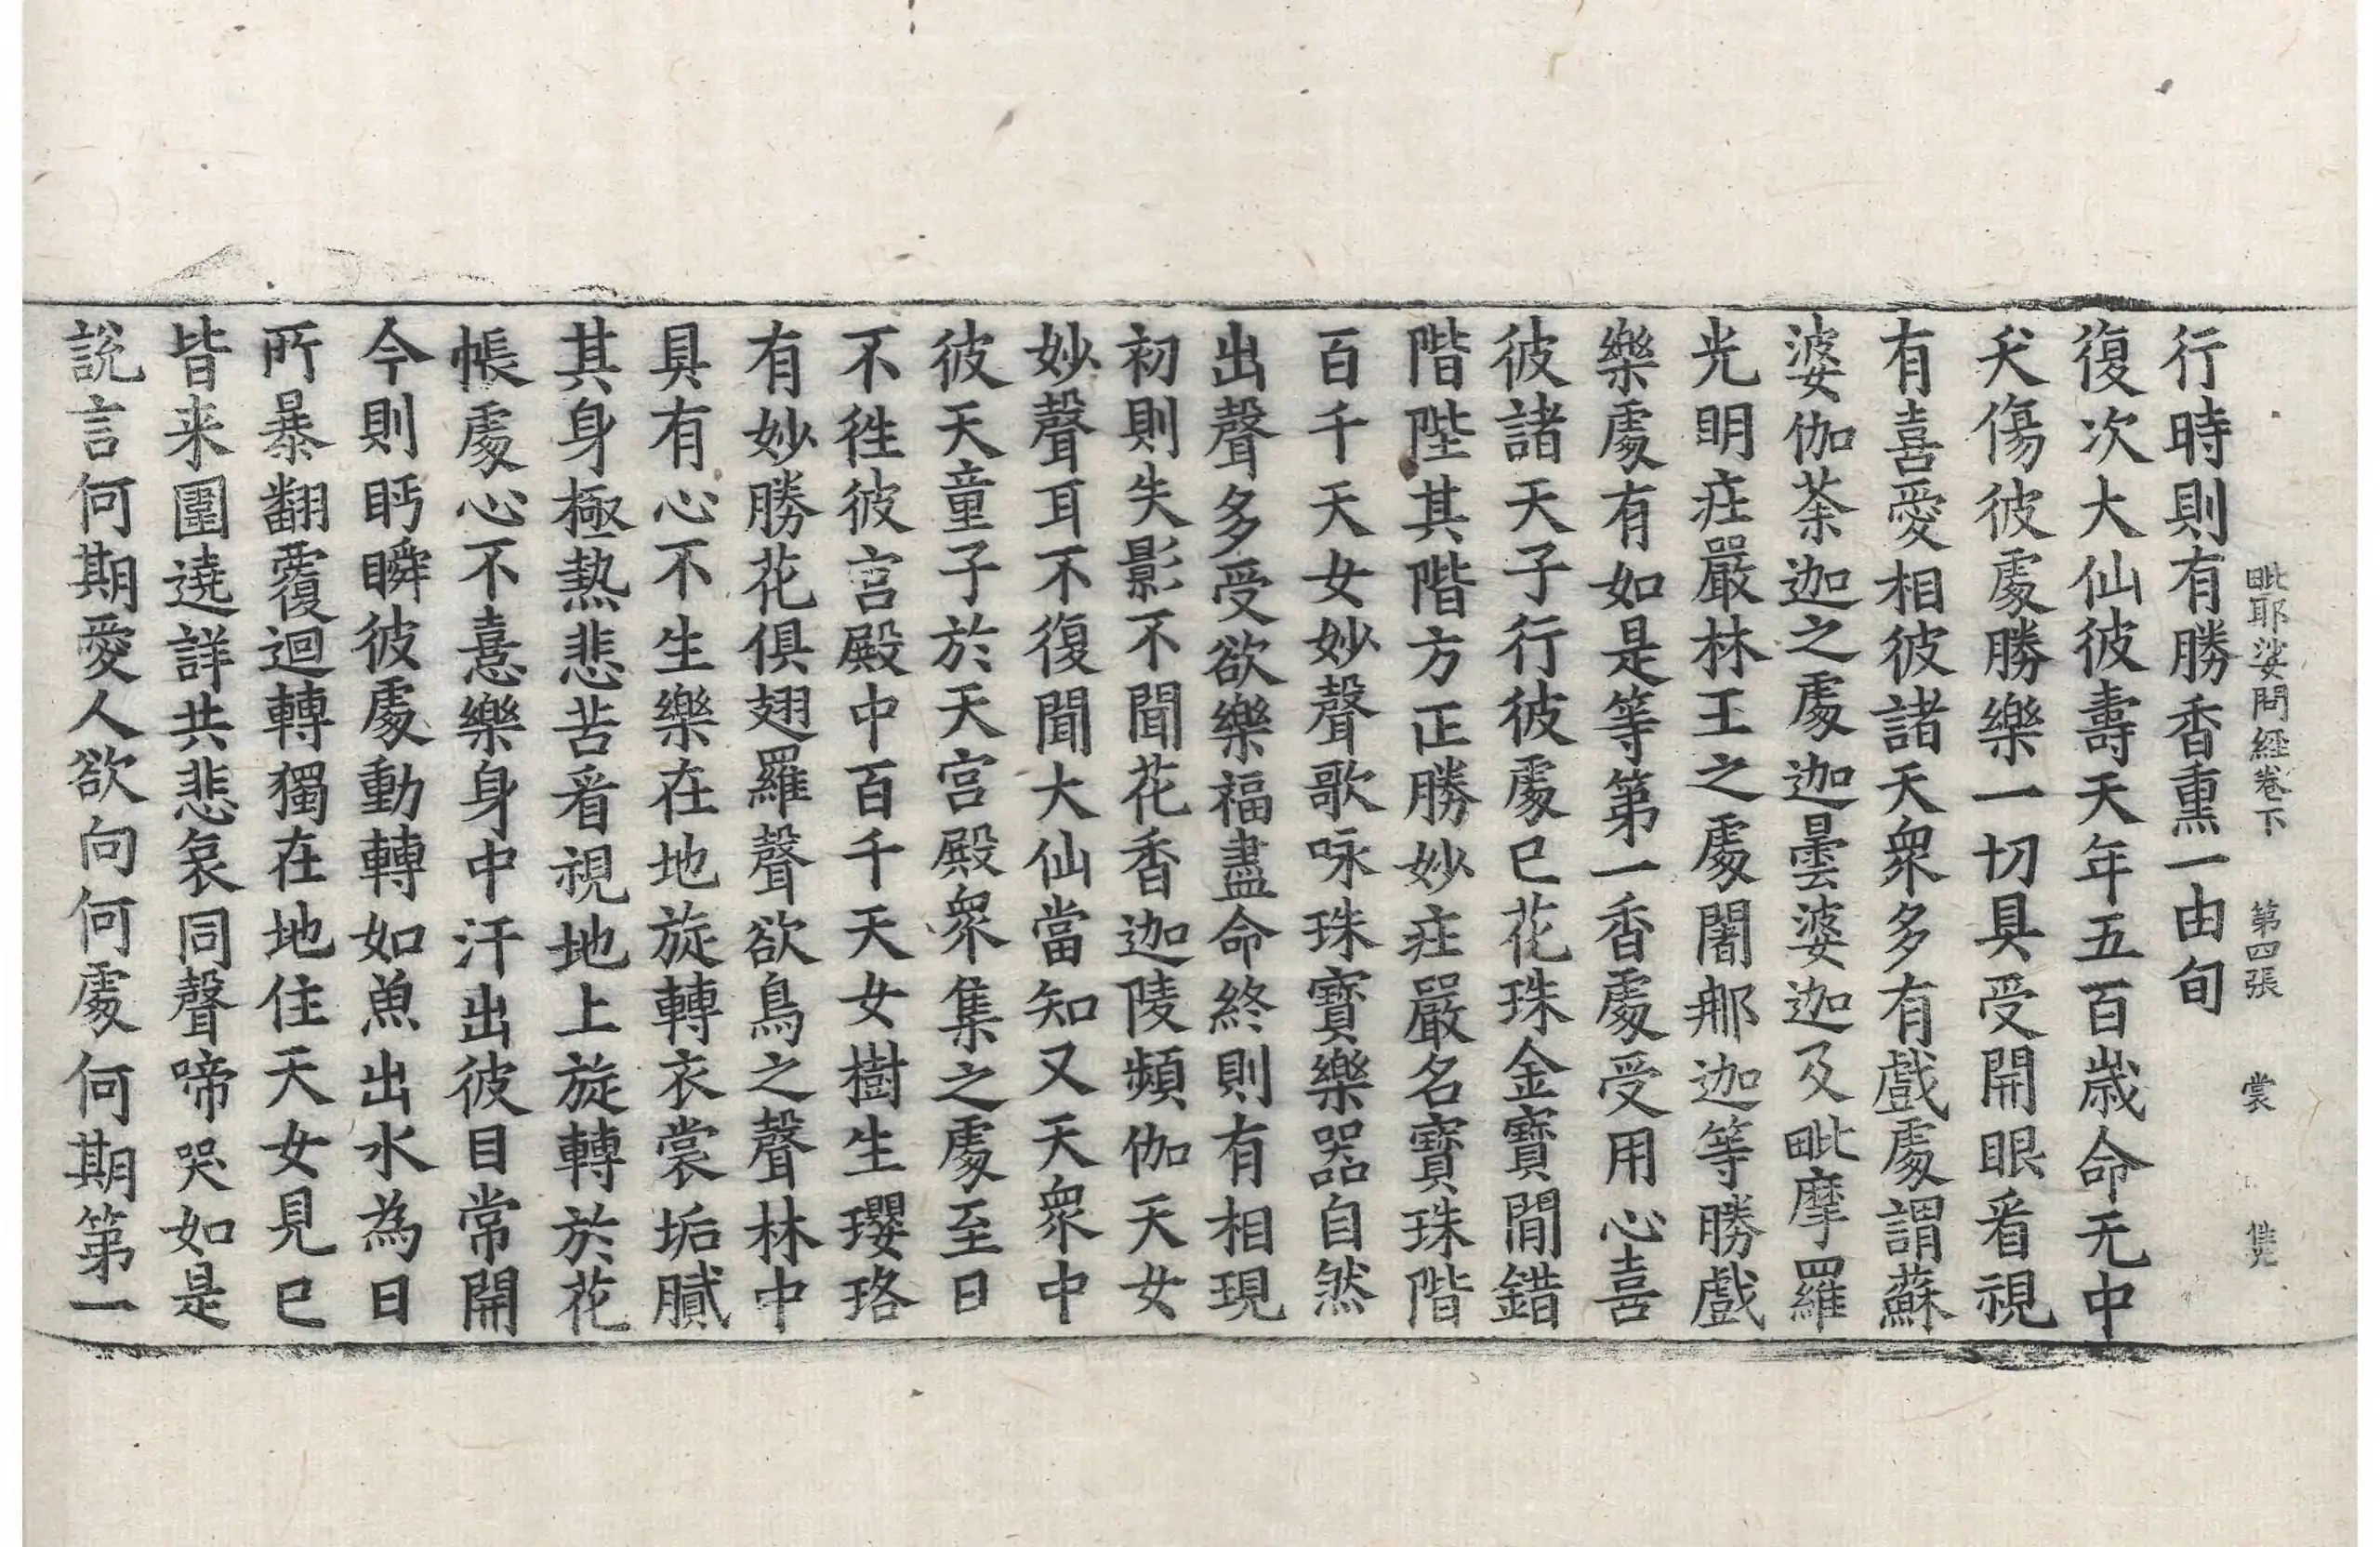 毗耶娑問經卷下　第四張　裳
行時則有勝香熏一由旬
復次大仙彼壽天年五百歲命无中
夭傷彼處勝樂一切具受開眼看視
有喜愛相彼諸天衆多有戲處謂蘇
婆伽荼迦之處迦曇婆迦及毗摩羅
光明庄嚴林王之處闍那迦等勝戲
樂處有如是等第一香處受用心喜
彼諸天子行彼處已花珠金寶間錯
階陛其階方正勝妙庄嚴名寶珠階
百千天女妙聲歌咏珠寶樂器自然
出聲多受欲樂福盡命終則有相現
初則失影不聞花香迦陵頻伽天女
妙聲耳不復聞大仙當知又天衆中
彼天童子於天宮殿衆集之處至日
不徃彼宮殿中百千天女樹生瓔珞
有妙勝花俱翅羅聲欲鳥之聲林中
具有心不生樂在地旋轉衣裳垢膩
其身極熱悲苦看視地上旋轉於花
帳處心不憙樂身中汗出彼目常開
今則眄瞬彼處動轉如魚出水為日
所暴翻覆迴轉獨在地住天女見已
皆来圍遶詳共悲哀同聲啼哭如是
説言何期愛人欲向何處何期第一